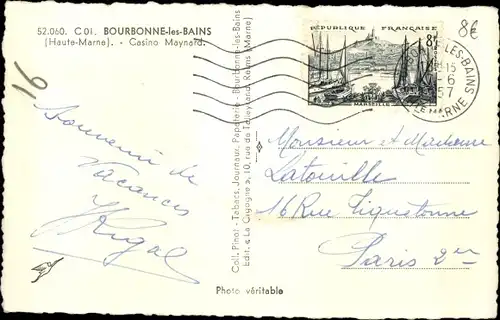 52.060. COI. BOURBONNE-les-BAINS
(Haute-Marne). - Casino Maynard.
16
Souvenir de
Vacances
Rigal
Coll. Pinot - Tabacs, Journaux, Papeterie - Bourbonne-les-Bains
Edit. « La Cigogne », 10, rue de Talleyrand, Reims (Marne)
Photo véritable
8€
RÉPUBLIQUE FRANÇAISE
8F
MARSEILLE
LES-BAINS
15
-6
57
MARNE
Monsieur et Madame
Latouille
16 Rue Tiquetonne
Paris 2er